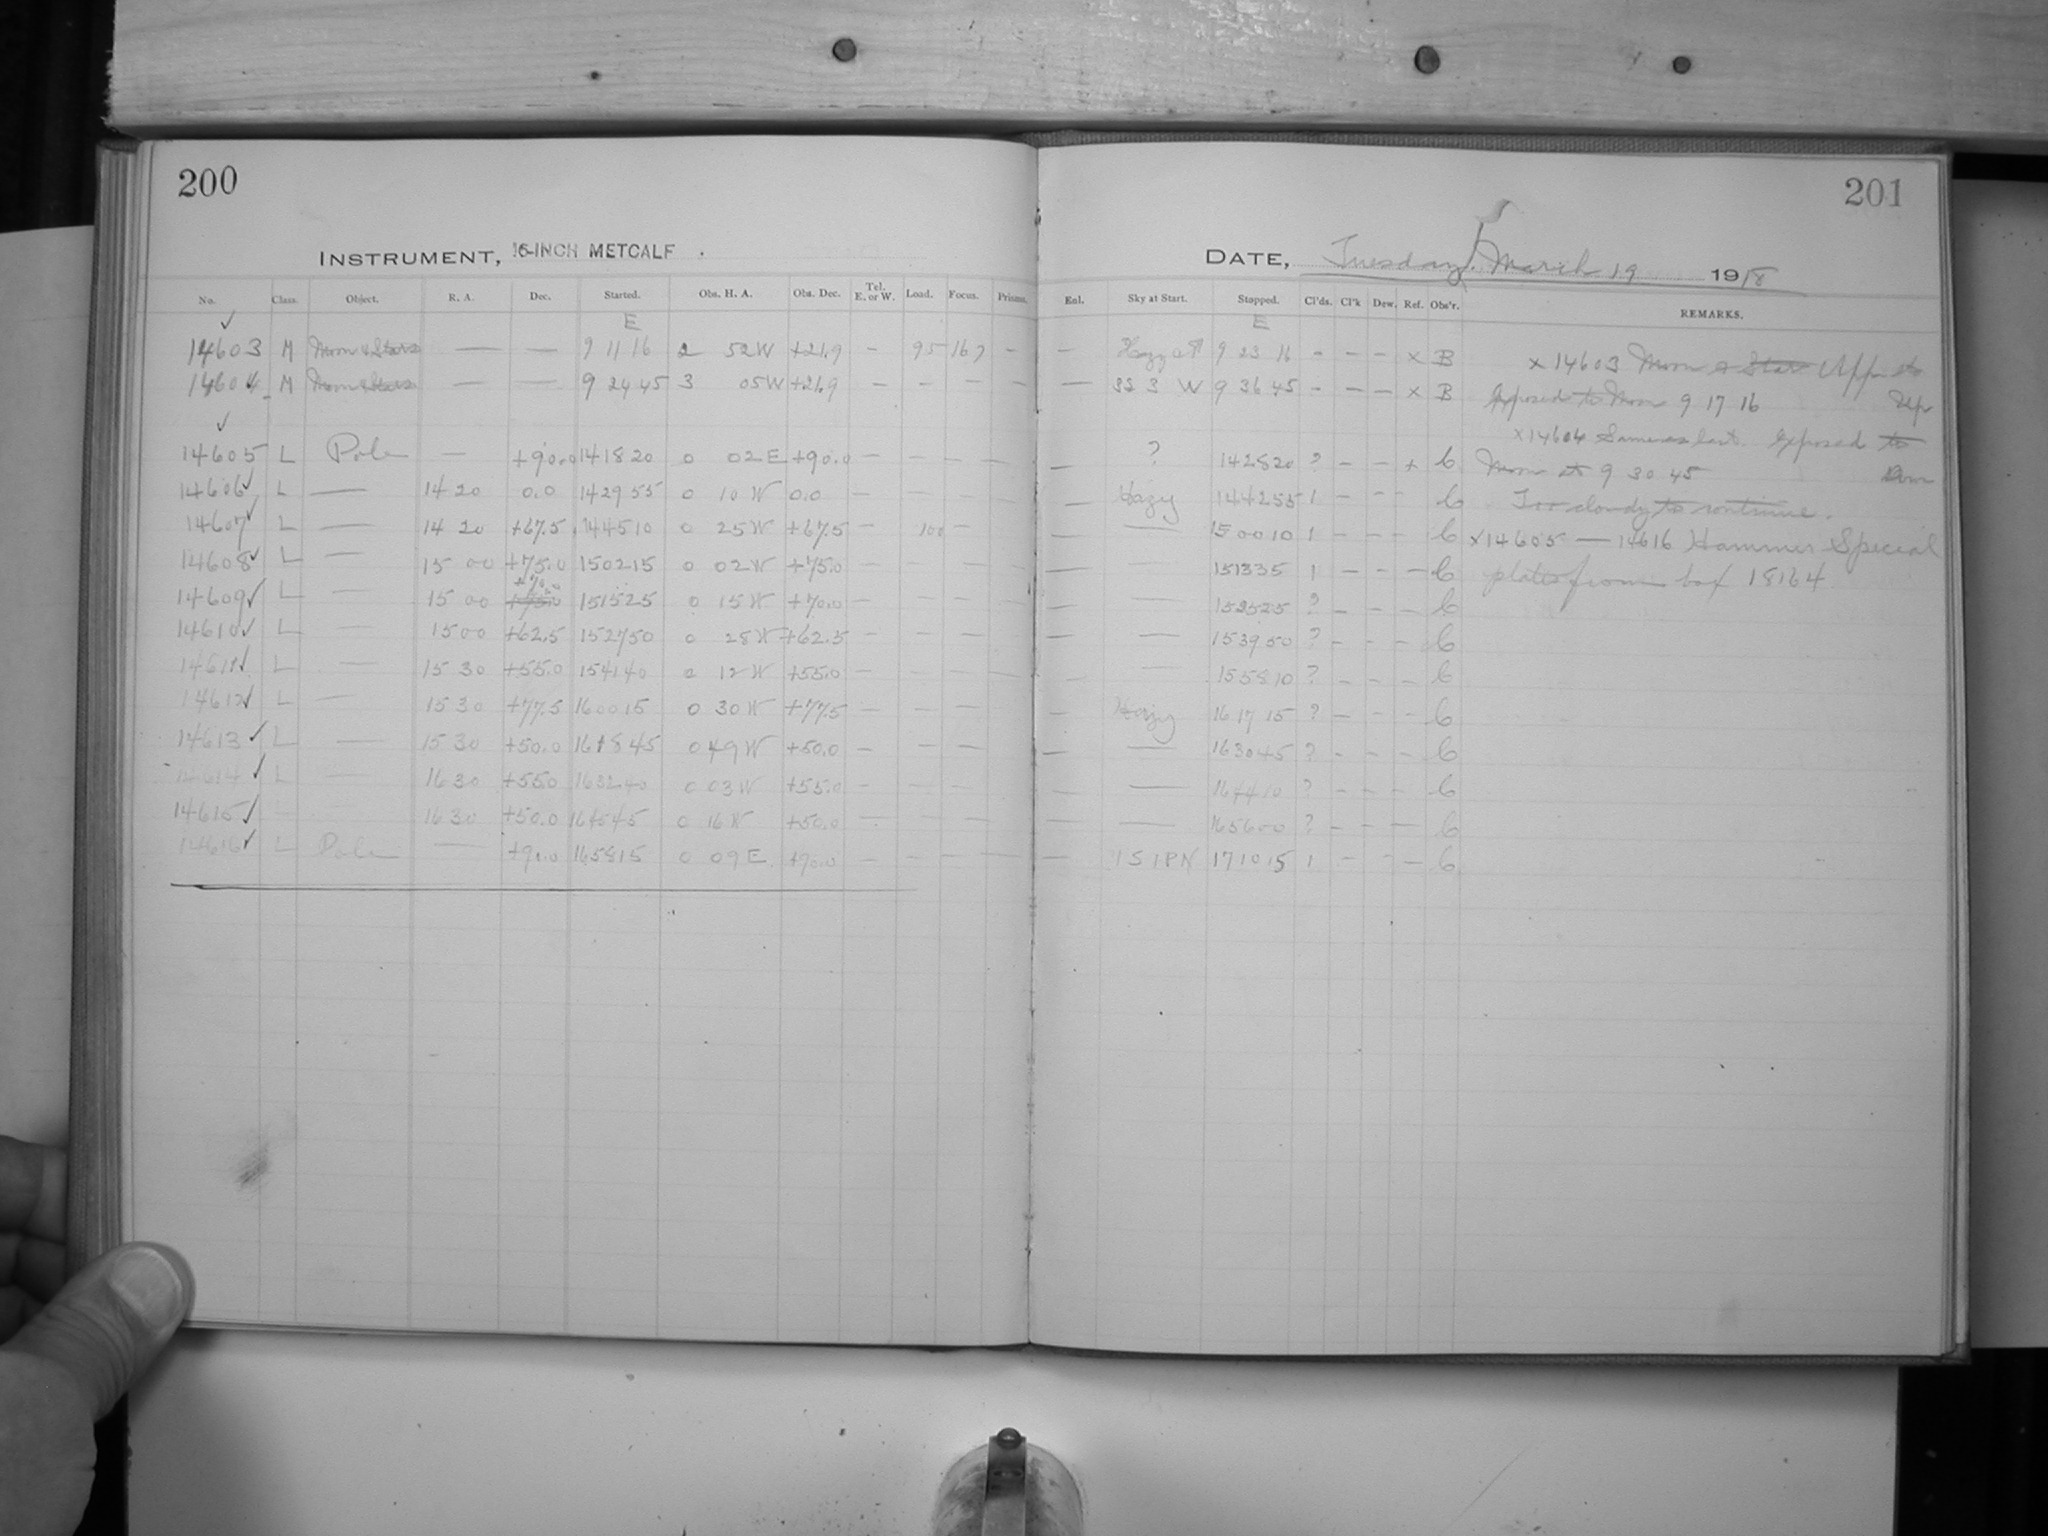 200
INSTRUMENT, 16-INCH METCALF .
No. Class. Object. R. A. Dec. Started. Obs. H. A. Obs. Dec. Tel. E. or W. Load. Focus. Prisms.
E
14603 M Moon & Stars — — 9 11 16 2 52 W +21.9 — 95 16 —
14604 M Moon & Stars — — 9 24 45 3 05 W +21.9 — — — —
14605 L Pole — +90.0 14 18 20 0 02 E +90.0 — — — —
14606 L — 14 20 0.0 14 29 55 0 10 W 0.0 — — — —
14607 L — 14 20 +67.5 14 45 10 0 25 W +67.5 — 100 —
14608 L — 15 00 +75.0 15 02 15 0 02 W +75.0 — — — —
+70.0
14609 L — 15 00 +75.0 15 15 25 0 15 W +70.0 — — — —
14610 L — 15 00 +62.5 15 27 50 0 28 W +62.5 — — — —
14611 L — 15 30 +55.0 15 41 40 0 12 W +55.0 — — — —
14612 L — 15 30 +77.5 16 00 15 0 30 W +77.5 — — — —
14613 L — 15 30 +50.0 16 18 45 0 49 W +50.0 — — — —
14614 L — 16 30 +55.0 16 32 40 0 03 W +55.0 — — — —
14615 16 30 +50.0 16 45 45 0 16 W +50.0 — — — —
14616 L Pole — +90.0 16 58 15 0 09 E +90.0 — — — —
201
DATE, Tuesday, March 19 1918
Enl. Sky at Start. Stopped. Cl'ds. Cl'k Dew. Ref. Obs'r. REMARKS.
E
— Hazy 9 23 16 - - - x B x 14603 Moon & Star
— SS 3 W 9 36 45 - - - x B Exposed to Moon 9 17 16
x 14604 Same as last. Exposed to
— ? 14 28 20 ? - - + C Moon at 9 30 45
— Hazy 14 42 55 1 - - - C Too cloudy to continue.
— — 15 00 10 1 - - - C x14605 — 14616 Hammer Special
— — 15 13 35 1 - - - C plates from box 18164
— — 15 25 25 ? - - - C
— — 15 39 50 ? - - - C
— — 15 58 10 ? - - - C
— Hazy 16 17 15 ? - - - C
— — 16 30 45 ? - - - C
— — 16 44 10 ? - - - C
— — 16 56 00 ? - - - C
— 1 S 1 P N 17 10 15 1 - - - C